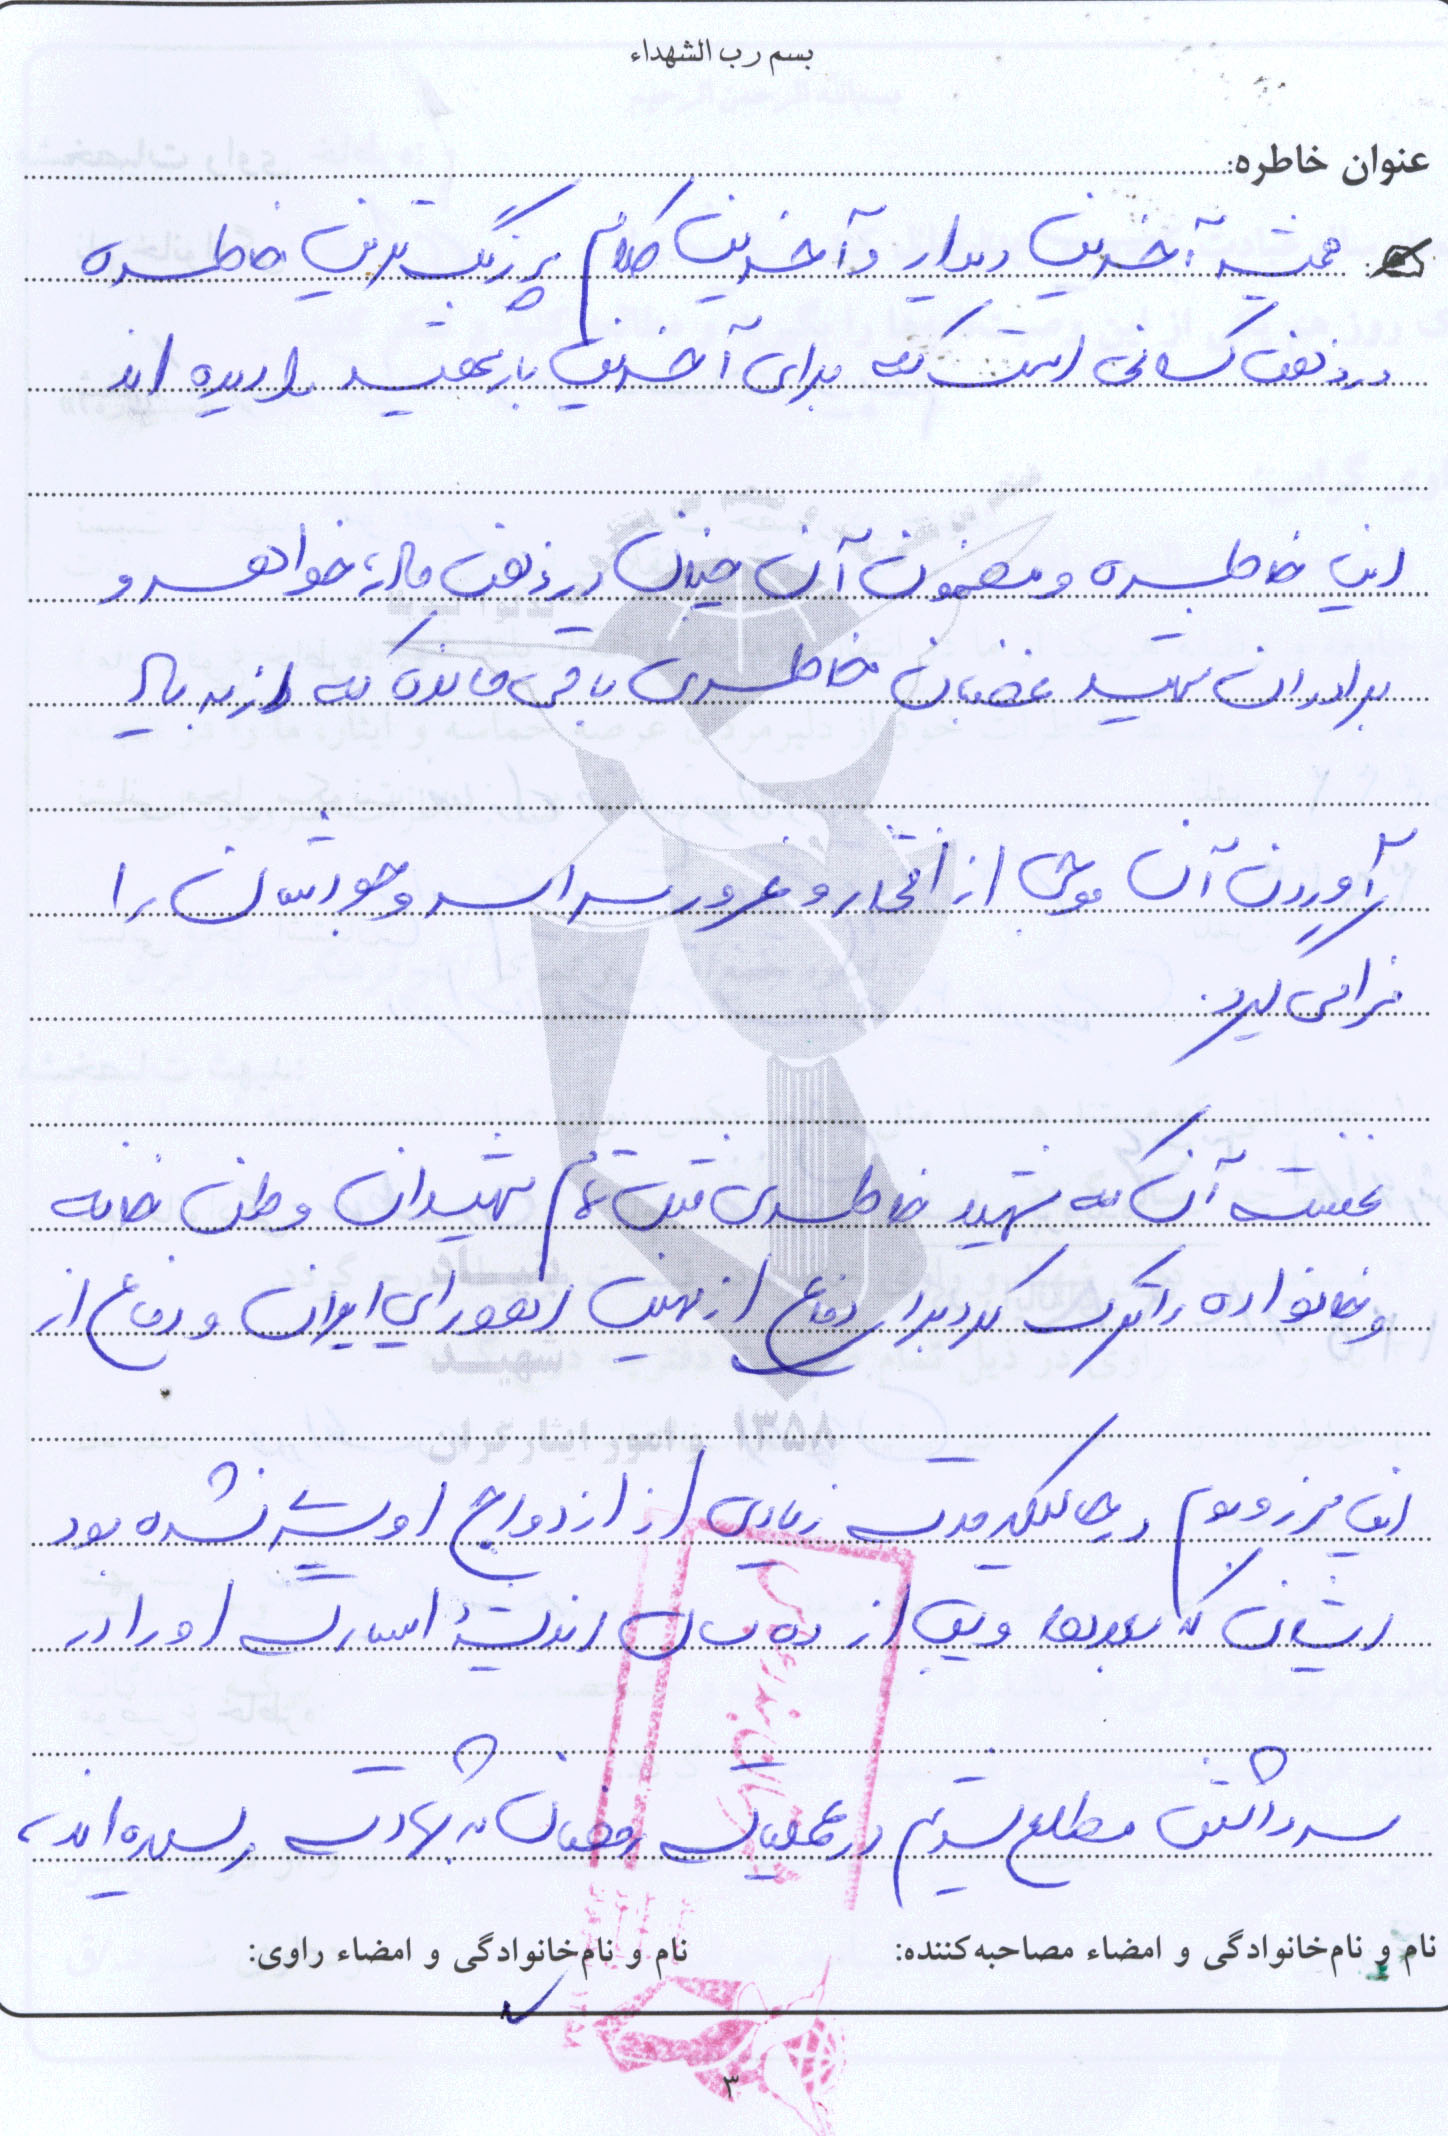 بسم رب الشهداء
عنوان خاطره:
همیشه آخرین دیدار و آخرین کلام پررنگ ترین خاطره
در ذهن کسانی است که برای آخرین بار شهید را دیده اند
این خاطره و مضمون آن چنان در ذهن مادر، خواهر و
برادران شهید غضبان خاطری باقی مانده که از به یاد
آوردن آن موجی از افتخار و غرور سراسر وجودشان را
فرا می گیرد.
نخست آن که شهید خاطری مثل تمام شهیدان وطن خانه
و خانواده را ترک کرد برای دفاع از میهن اهورایی ایران و دفاع از
این مرز و بوم در حالیکه مدت زیادی از ازدواج او سپری نشده بود
ایشان که بعدها و پس از ده سال اندیشهٔ اسارت او را در
سر داشتن مطلع شدیم در عملیات رمضان به شهادت رسیده اند،
نام و نام‌خانوادگی و امضاء مصاحبه‌کننده:
نام و نام‌خانوادگی و امضاء راوی:
۱۳۵۸
و امور ایثارگران
۳